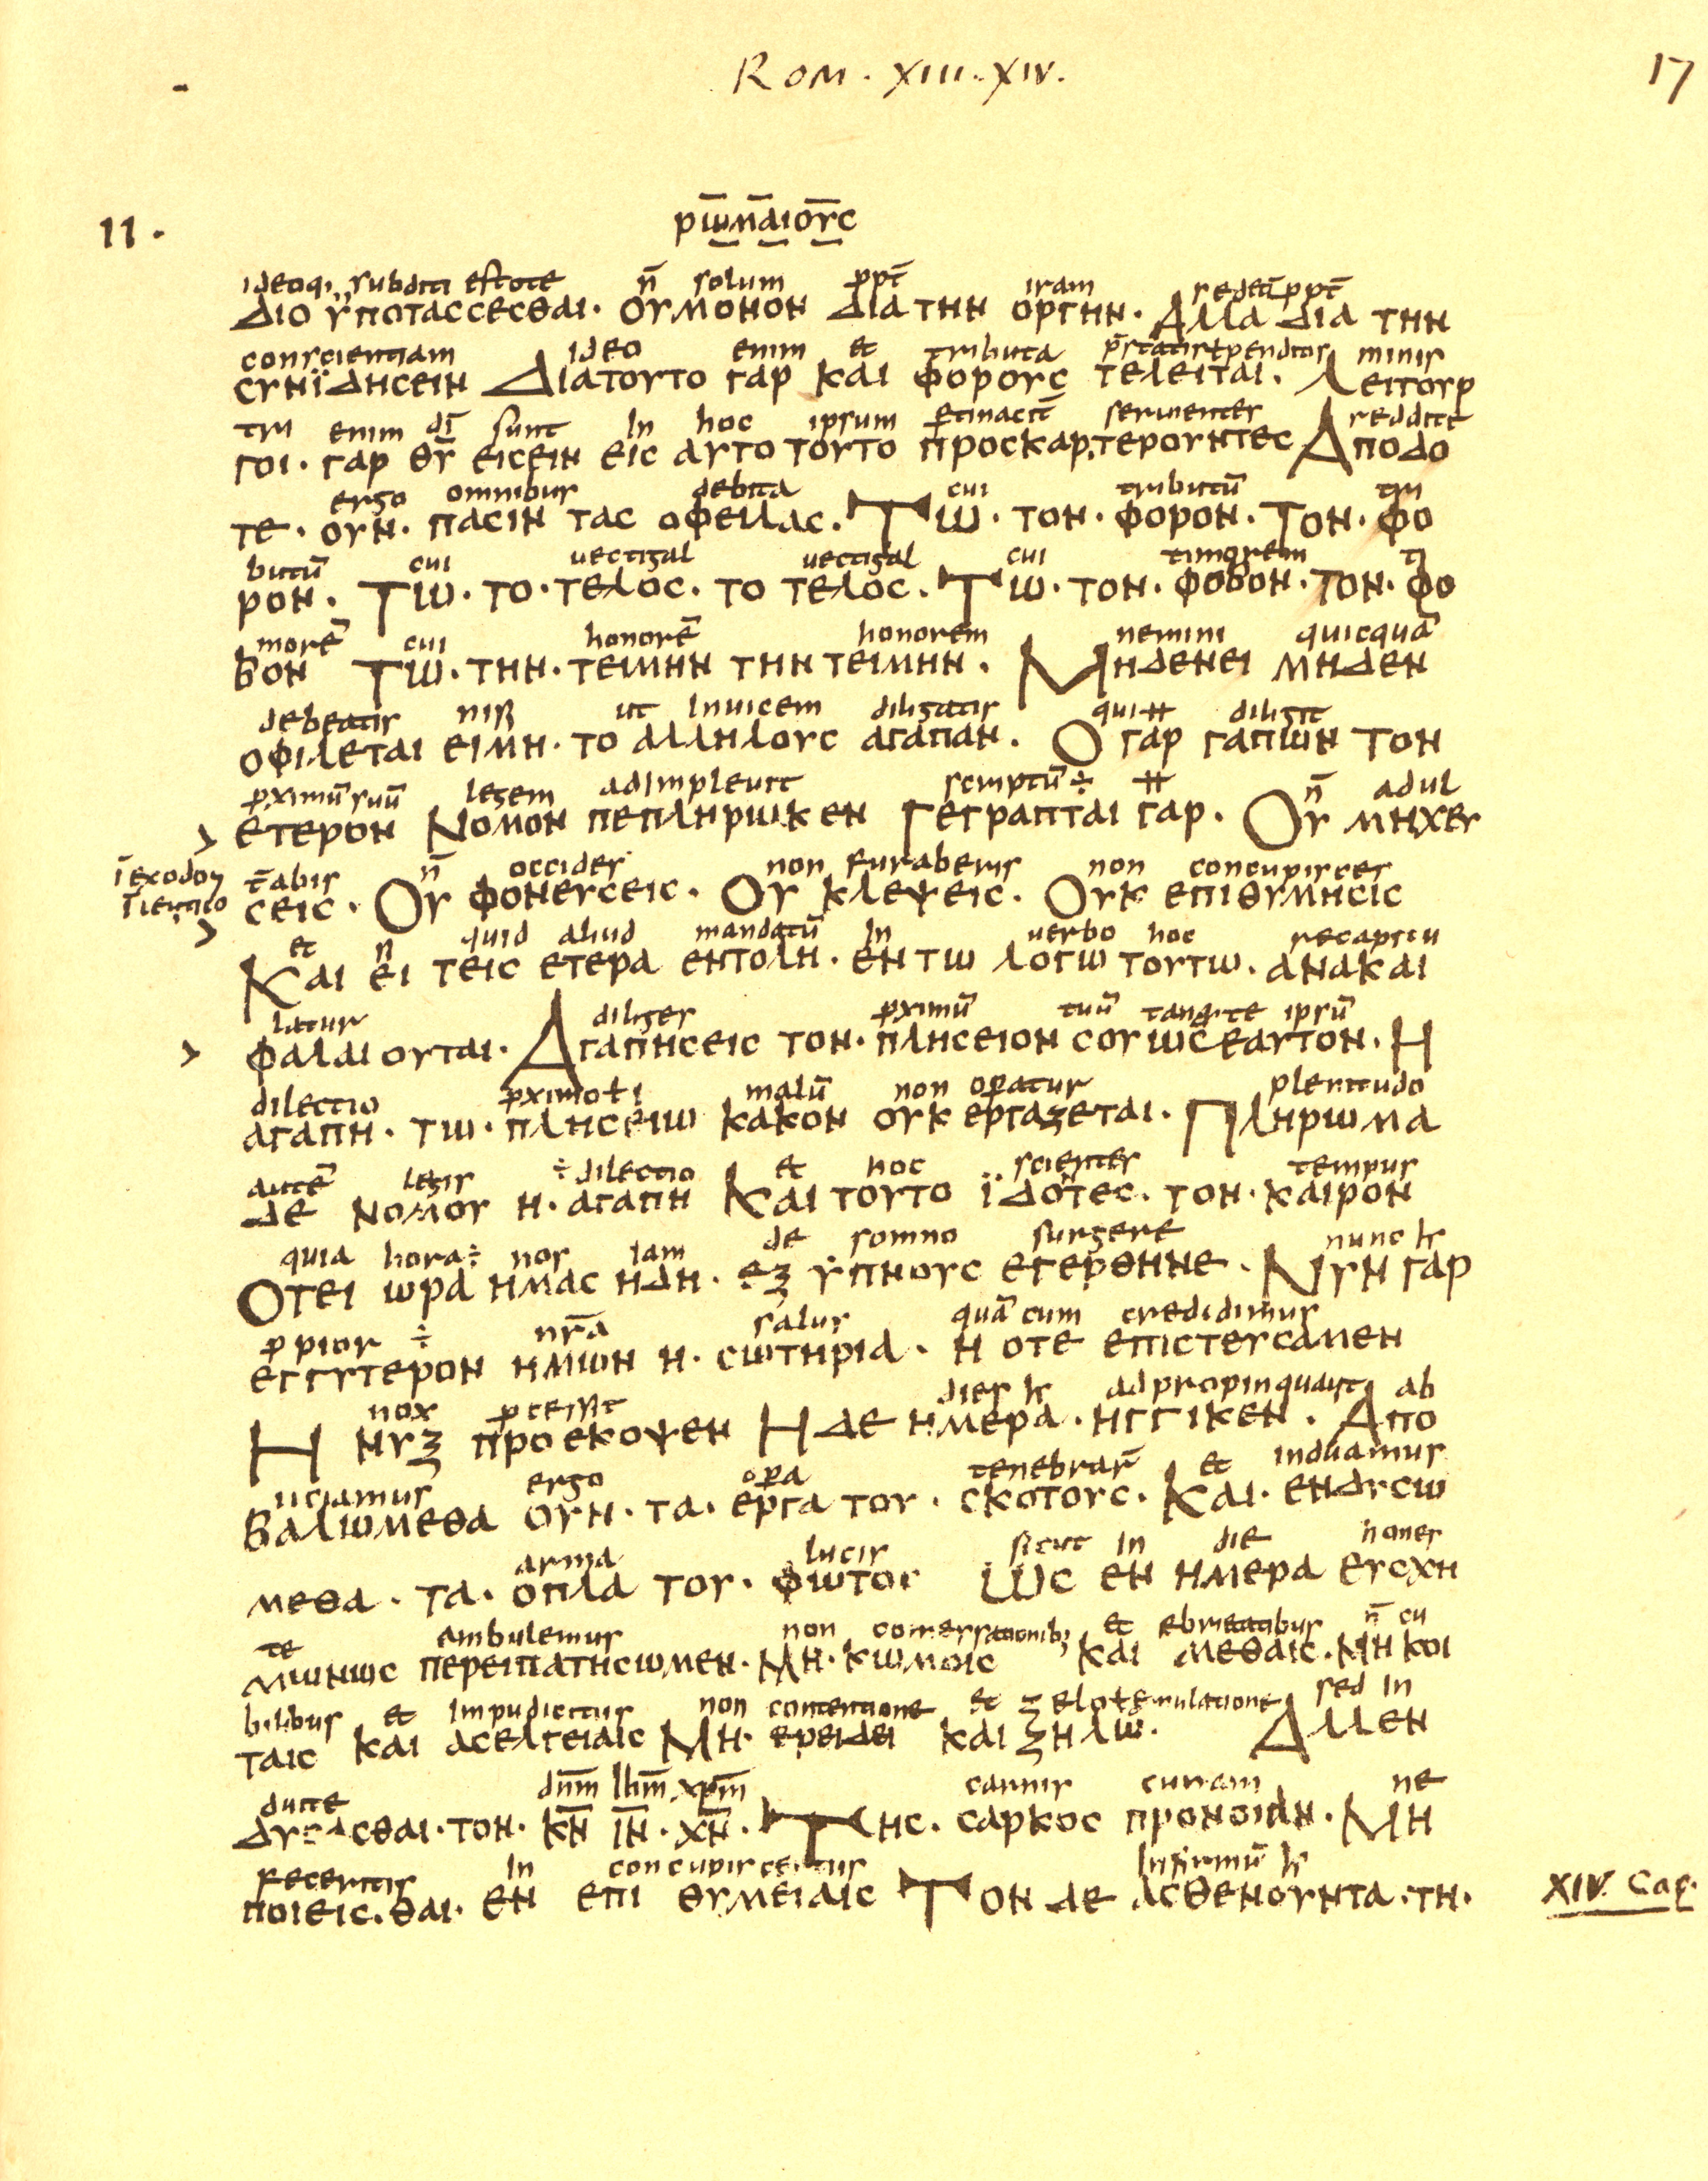 Rom. XIII. XIV.
17
11.
ρω̅μα̅ιου̅ς
ideoq; subditi estote n̅ solum ppt̅ iram sedet̅ ppt̅
Διο ϋποτασσεσθαι· ουμονον δια την οργην· Αλλα δια την
conscientiam ideo enim et tributa p̅statis ł penditis minis
συνϊδησειν Διατουτο γαρ και φορους τελειται. Λειτουρ
tri enim dī sunt In hoc ipsum ptinacit̅ seruientes reddite
γοι· γαρ θῡ εισειν εις αυτο τουτο προσκαρ,τερουντες Αποδο
ergo omnibus debita cui tributu̅ tri
τε· ουν· πασιν τας οφειλας. Τω· τον· φορον. Τον· φο
butu̅ cui uectigal uectigal cui timorem ti
ρον. Τω· το· τελος. το τελος. Τω· τον· φοβον· τον· φο
more̅ cui honore̅ honorem nemini quicqua̅
βον Τω· την· τειμην την τειμην. Μηδενει μηδεν
debeatis nisi ut Inuicem diligatis qui ++ diligit
οφιλεται ειμη· το αλληλους αγαπαν. Ο γαρ γαπων τον
pximu̅ suu̅ legem adImpleuit scriptu̅ ÷ ++ n̅ adul
> ετερον Νομον πεπληρωκεν Γεγραπται γαρ. Ου μηχευ
Īexodou
t̅abis n̅ occides non furaberis non concupisces
σεις· Ου φονευσεις. Ου κλεψεις. Ουκ επιθυμησις
>
et n quid aliud mandatu̅ In uerbo hoc recapitu
Και ει τεις ετερα εντολη· εν τω λογω τουτω. ανακαι
latur diliges pximu̅ tuu̅ tanq· te ipsu̅
> φαλαιουται. Αγαπησεις τον· πλησειον σου ως̅εαυτον· Η
dilectio pximo ł i malu̅ non opatur plenitudo
αγαπη· τω· πλησειω κακον ουκ εργαζεται. Πληρωμα
aute̅ legis ÷ dilectio et hoc scientes tempus
δε νομου η· αγαπη Και τουτο ϊδοτες. τον· καιρον
quia hora ÷ nos Iam de somno surgere nunc
Οτει ωρα ημας ηδη· εξ ϋπνους εγερθηνε. Νυν γαρ
ppior ÷ nr̅a salus qua̅ cum credidimus
εγγυτερον ημων η· σωτηρια· η οτε επιστευσαμεν
nox pcessit dies adpropinquauit ab
Η νυξ προεκοψεν Η δε ημερα· ηγγικεν. Απο
iiciamus ergo opa tenebrar̅ et induamus
βαλωμεθα ουν· τα· εργα του· σκοτους. Και· ενδυσω
arma lucis sicut In die hones
μεθα· τα· οπλα του· φωτος Ως εν ημερα ευσχη
te ambulemus non comersationib; et ebrietatibus n̅ cu
μωνως περειπατησωμεν· Μη· κωμοις και μεθαις. Μη κοι
bilibus et Impudicitus non contentione et zelo ł emulatione sed In
ταις και ασελγειαις Μη· ερειδει και ζηλω. Αλλεν
duite dnm̅ Ihm̅ xpm̅ carnis curam ne
δυσασθαι· τον· κ̅ν̅ ι̅ν̅· χ̅ν̅· Της. σαρκος προνοιαν· Μη
feceritis In concupiscentus Infirmu̅
ποιεις.θαι· εν επι θυμειαις Τον δε ασθενουντα· τη·
XIV. Cap.